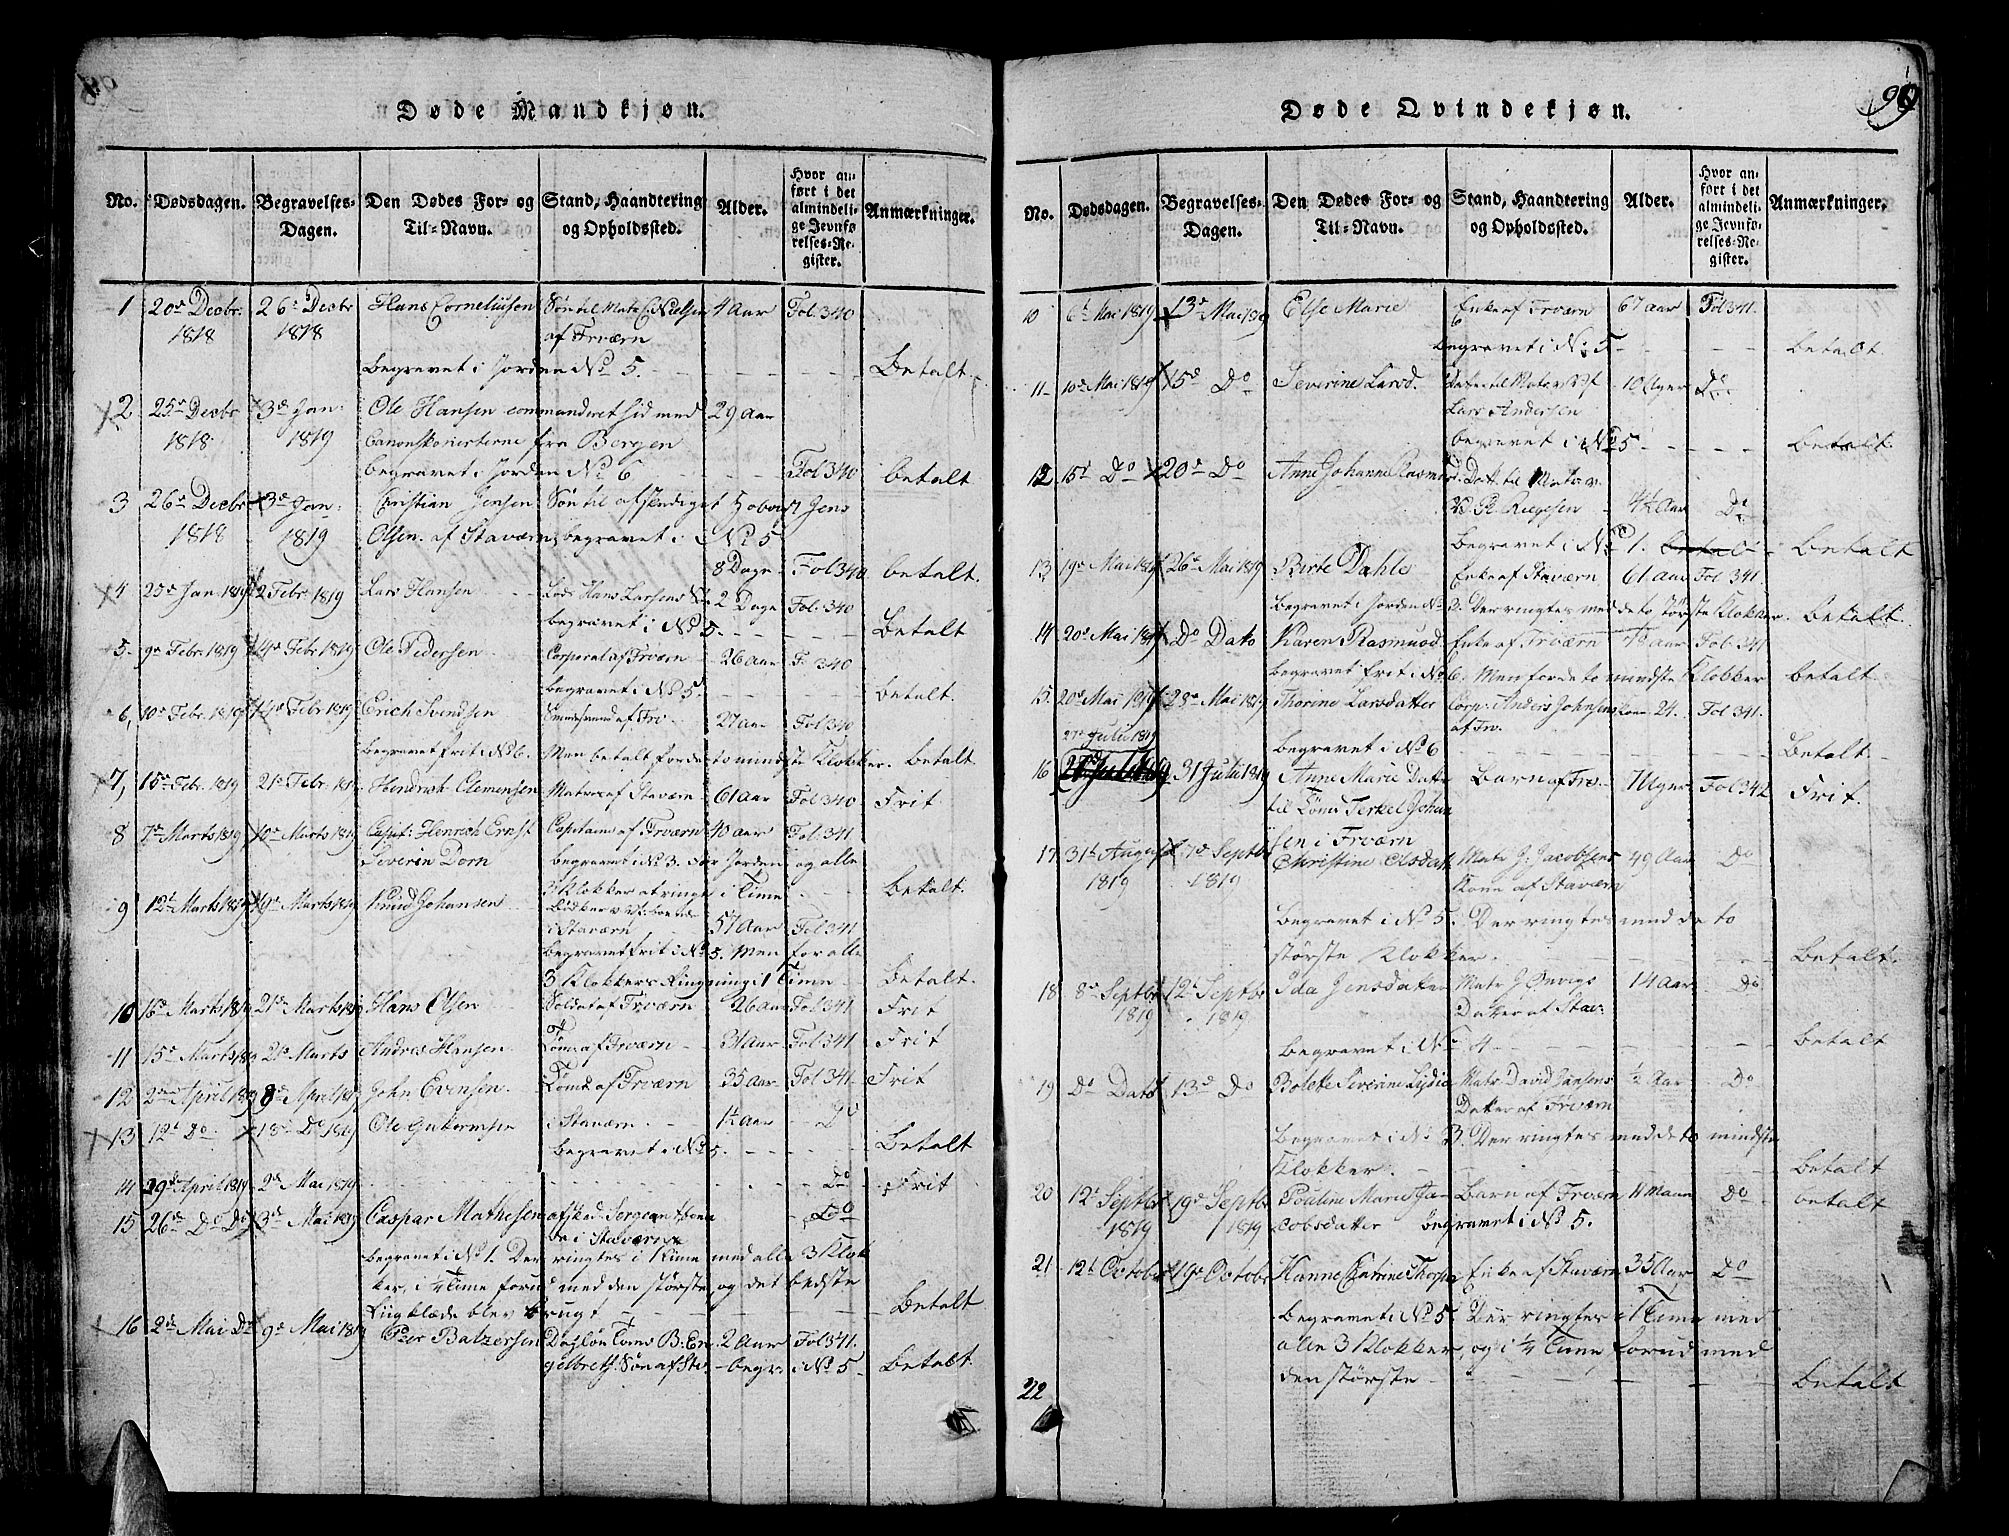 99
Døde Mandkjøn.
No. Dødsdagen. Begravelses-Dagen. Den Dødes For- og Til-Navn. Stand, Haandtering og Opholdssted. Alder. Hvor anført i det almindelige Jevnførelses-Register. Anmærkninger.
1 20de Decbr. 26de Decbr Hans Corneliusen Søn til Matr. C. Nielsen 4 Aar Fol: 340
1818 1818 af Frværn
Begravet i Jorden No 5. Betalt
2 25de Decbr 3de Jan: Ole Hansen commanderet hid med 29 Aar
1818. 1819 Canonskonerterne fra Bergen
begravet i Jorden No 6 Fol 340 betalt
3 26de Decbr 3de Jan: Christian Jensen Søn til afskediget Hoboist Jens
1818 1819 Olsen af Staværn, begravet i No 5
8 Dage Fol 340 betalt.
4 25de Jan 1819 2 Febr. 1819 Lars Hansen Lods Hans Larsens 2 Dage Fol: 340
begravet i No 5. Betalt
5. 9de Febr. 1819 14de Febr. 1819 Ole Pedersen Corporal af Frværn 26 Aar F. 340
begravet i No 5. betalt
6, 10de Febr. 1819 14de Febr 1819 Erich Svendsen af Frv. 27 Aar Fol 340
begravet frit i No 6. Men betalt for de to mindste Klokker. betalt
7, 15de Febr. 1819 21de Febr. 1819 Hendrich Clemensen Matros af Staværn 61 Aar Fol 340 Frit
8 7de Marts 1819 10de Marts 1819 Capit: Henrich Ernst Capitain af Frværn 40 Aar Fol: 341
Severin Dorn begravet i No 3. For Jorden og alle
3 Klokker at ringe i Time Betalt.
9 12te Marts 1819 19de Marts 1819 Knud Johansen Bødker
i Staværn 57 Aar Fol 341
begravet frit i No 5. Men for alle
3 Klokkers Ringning i 1 Time Betalt.
10 16de Marts 1819 21de Marts 1819 Hans Olsen Soldat af Frværn 26 Aar Fol 341 Frit
11 15de Marts 1819 21de Marts Andres Hansen af Frværn 31 Aar Fol 341 Frit
12 2den April 1819 8de April 1819 John Evensen. af Frværn 35 Aar Fol 341. Frit
13 12te Do 18de Do 1819 Ole i Staværn. 1½ Aar Do
Begravet i No 5. Betalt
14 29de April 1819 2de Mai 1819 Do Frit
15 26de Do Do 3de Mai 1819 Caspar Mathesen afsked: Sergeant boen
de i Staværn Do
begravet i No 1. Der ringtes i 1 Time med alle 3 Klok
ker, i ¼ Time forud med den største og det bedste
Liigklæde blev brugt Betalt
16 2de Mai Do 9de Mai 1819 Peer Baltzersen Dagløn Toms B: En- 2 Aar Fol 341.
gelbreth: Søn af Stv. Begr: i No 5 Betalt.
Døde Qvindekjøn.
No. Dødsdagen. Begravelses-Dagen. Den Dødes For- og Til-Navn. Stand, Haandtering og Opholdssted. Alder. Hvor anført i det almindelige Jevnførelses-Register. Anmærkninger.
10 6te Mai 1819 13de Mai 1819 Else Marie Enke af Frværn 67 Aar Fol 341.
begravet i No 5 betalt.
11 10de Mai 1819 15de Do Severine Larsd. Datter til Matr.
Lars Andersen 10 Uger Do
begravet i No 5 betalt.
12 15de Do 20de Do Anne Johanne Rasmusd. Datt. til Matr.
4½ Aar Do
begravet i No 1. betalt Betalt
13 19de Mai 1819 26de Mai 1819 Birte Dahls Enke af Staværn 61 Aar Fol 341.
begravet i Jorden No 2. Der ringtes med de to største Klokker. betalt.
14 20de Mai 1819 Do Dato Karen Rasmusd. Enke af Frværn Aar Fol. 341
begravet frit i No 6. Men for de to mindste Klokker betalt.
15. 20de Mai 1819 28de Mai 1819 Thorine Larsdatter Corp: Anders Johnsens Kone 24. Fol 341.
af Frv.
begravet i No 6 Betalt.
27de Julii 1819
16 31 Julii 1819 Anne Marie Datr. Barn af Frv. 7 Uger Fol 342 Frit.
til Tømd Terkel Johan
sen i Frværn
17. 31te August 7de Septbr Christine Olsdatt. Matr J: Jacobsens 49 Aar Do
1819 1819 Kone af Staværn
Begravet i No 5. Der ringtes med de to
største Klokker. Betalt.
18 8de Septbr 12te Septbr Ida Jensdatter Matr J Qvvigs 14 Aar Do
1819 1819 Datter af Stav:
begravet i No 4 betalt
19 Do Dato 13de Do Bolette Severine Lydia Matr: David Jansens ½ Aar Do
Datter af Frværn
Begravet i No 3. Der ringtes med de to mindste
Klokker. Betalt
20 12te Septbr 19de Septbr Pouline Marie Ja- Barn af Frværn 11 Maan Do betalt
1819 1819 cobsdatter begravet i No 5.
21 12te October 19de October Hanne Catrine Thorsen Enke af Staværn 35 Aar Do
Begravet i No 5. Der ringtes i 1 Time med
alle 3 Klokker, og i ¼ Time forud med
den største Betalt
22